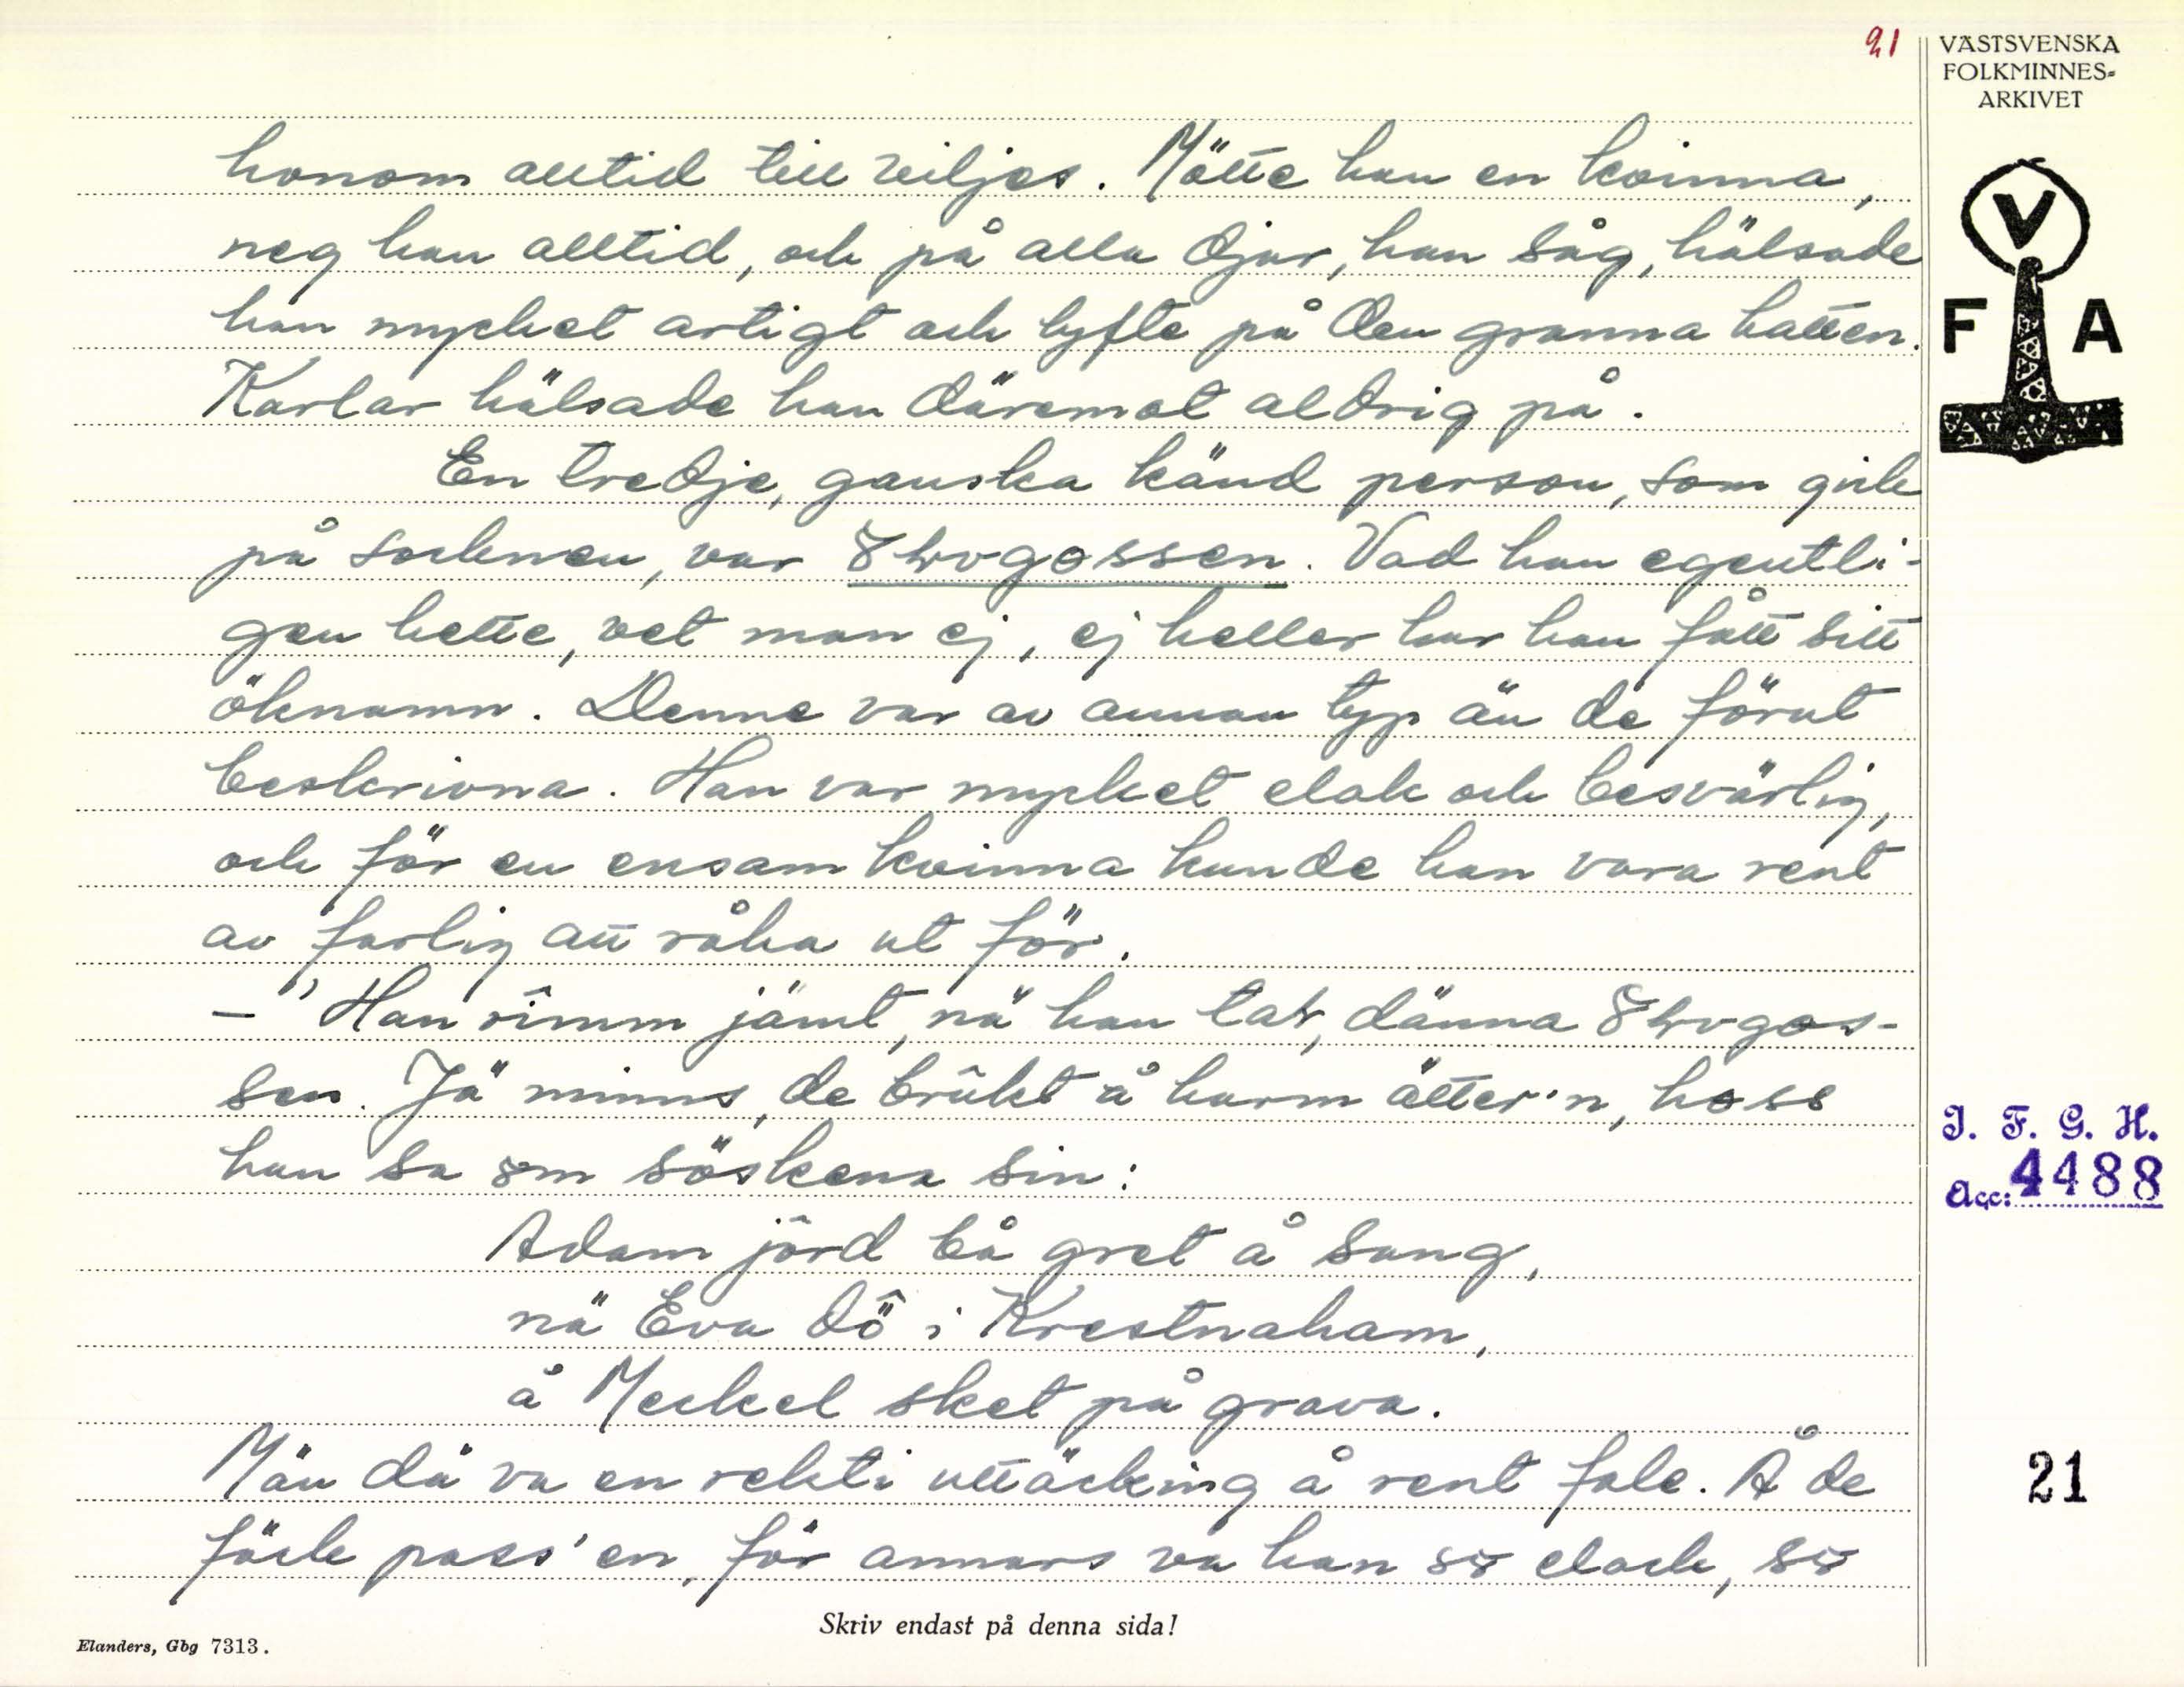 21
VÄSTSVENSKA
FOLKMINNES-
ARKIVET
V
F A
honom alltid till viljes. Mötte han en kvinna,
neg han alltid, och på alla djur, han såg, hälsade
han mycket artigt och lyfte på den granna hatten.
Karlar hälsade han däremot aldrig på.
En tredje, ganska känd person, som gick
på socknen, var . Vad han egentli-
gen hette, vet man ej, ej heller hur han fått sitt
öknamn. Denne var av annan typ än de förut
beskrivna. Han var mycket elak och besvärlig,
och för en ensam kvinna kunde han vara rent
av farlig att råka ut för.
– "Han rîmm jämt, nä han tal, dänna
sen. Jä minns, de brûkt å harm ätter'n, hoss
han sa om söskena sin:
Adam jôrd bå gret å sang,
nä Eva dô i Krestnaham,
å Meckel sket på grava.
Män dä va en rekti uttäcking å rent fale. Å de
fäck pass' en, för annars va han så elack, så
I. F. G. H.
Acc: 4488
21
Skriv endast på denna sida!
Elanders, Gbg 7313.